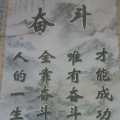 奋斗
人的一生
全靠奋斗
唯有奋斗
才能成功